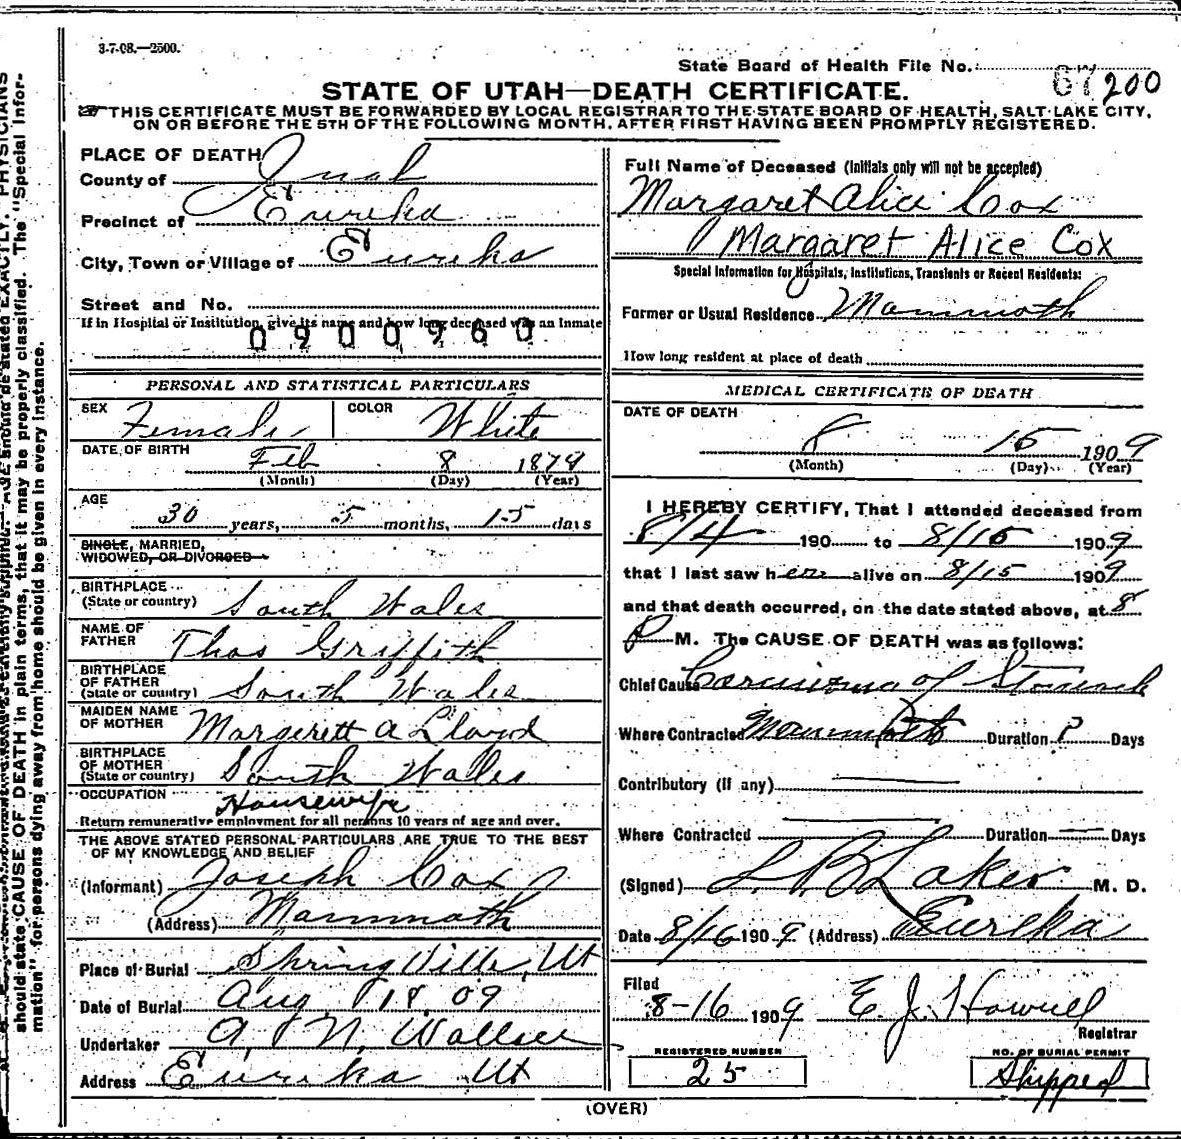 3-7-08.—2500.
State Board of Health File No.
67 200
STATE OF UTAH—DEATH CERTIFICATE.
THIS CERTIFICATE MUST BE FORWARDED BY LOCAL REGISTRAR TO THE STATE BOARD OF HEALTH, SALT LAKE CITY,
ON OR BEFORE THE 5TH OF THE FOLLOWING MONTH, AFTER FIRST HAVING BEEN PROMPTLY REGISTERED.
PLACE OF DEATH
County of Juab
Precinct of Eureka
City, Town or Village of Eureka
Street and No.
If in Hospital or Institution, give its name and how long deceased was an Inmate
0900960
Full Name of Deceased (Initials only will not be accepted)
Margaret Alice Cox
Margaret Alice Cox
Special Information for Hospitals, Institutions, Transients or Recent Residents:
Former or Usual Residence Mammoth
How long resident at place of death
PERSONAL AND STATISTICAL PARTICULARS
SEX Female COLOR White
DATE OF BIRTH Feb 8 1879
(Month) (Day) (Year)
AGE
30 years, 5 months, 15 days
SINGLE, MARRIED,
WIDOWED, OR DIVORCED
BIRTHPLACE
(State or country) South Wales
NAME OF
FATHER Thos Griffith
BIRTHPLACE
OF FATHER
(State or country) South Wales
MAIDEN NAME
OF MOTHER Margerett A
BIRTHPLACE
OF MOTHER
(State or country) South Wales
OCCUPATION Housewife
Return remunerative employment for all persons 10 years of age and over.
THE ABOVE STATED PERSONAL PARTICULARS ARE TRUE TO THE BEST
OF MY KNOWLEDGE AND BELIEF
(Informant) Joseph Cox
(Address) Mammoth
Place of Burial Springville, Ut
Date of Burial Aug 18 09
Undertaker A. N. Wallace
Address Eureka Ut
MEDICAL CERTIFICATE OF DEATH
DATE OF DEATH
8 15 1909
(Month) (Day) (Year)
I HEREBY CERTIFY, That I attended deceased from
8/4 190 to 8/15 1909
that I last saw her alive on 8/15 1909
and that death occurred, on the date stated above, at 8
P M. The CAUSE OF DEATH was as follows:
Chief Cause Carcinoma of Stomach
Where Contracted Mammoth Duration ? Days
Contributory (if any)
Where Contracted Duration — Days
(Signed) M. D.
Date 8/16 1909 (Address) Eureka
Filed
8-16 1909 E. J. Howell
Registrar
REGISTERED NUMBER
25
NO. OF BURIAL PERMIT
Shipped
(OVER)
should state CAUSE OF DEATH in plain terms, that it may be properly classified. The "Special Infor-
mation" for persons dying away from home should be given in every instance.